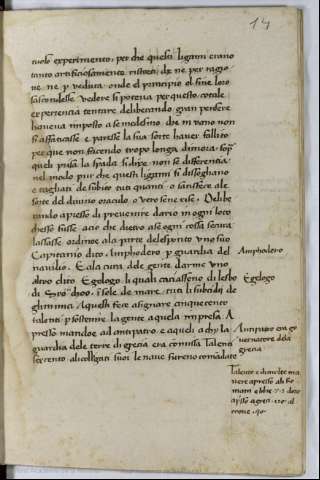 14
cuolo experimento, per che questi ligami erano
tanto artificiosamente ristreti, che ne per ragio
ne, ne p veduta, onde el principio ol fine loro
fascondesse vedere si poteua per questo, cotale
experiencia tentare deliberando, gran pensere
haueua imposto a se medesimo, che in vano non
si affaticasse e paresse la sua sorte hauer fallito
per que non facendo tropo longa dimora, sop
queli prisa la spada, si dixe, non se differentia
nel modo pur che questi ligami si dissoghano
e tagliati de subito tuti quanti, o satisfere ale
sorte del diuino oraculo, o vero sene rise. Delibe
rando apresso di preuenire dario in ogni loco
chesso fusse, acio che dietro ase ogni cossa secura
lassasse, ordinoe ala parte delesponto vno suo
Capitanio dito, Amphodero, p guardia del
nauilio. E ala cura dele gente darme vno
altro dito Egologo, li quali cacciasseno di lesbo
di Scio, dico, isole de mare, tuti li subditi de
glinimici. A questi fece asignare cinquecento
talenti, p sostenere la gente aquela impresa. A
presso mandoe ad antipatro, e aqueli achy la
guardia dele terre di grecia era comissa Talenti
secento, ali collegati suoi le naue fureno comandate
Amphodero
Egologo
Antipatro era go
uernatore dela
grecia
Talento e di monete ma
niere apresso ali Ro
mani e libre
apresso a greci 120 al
trone 70